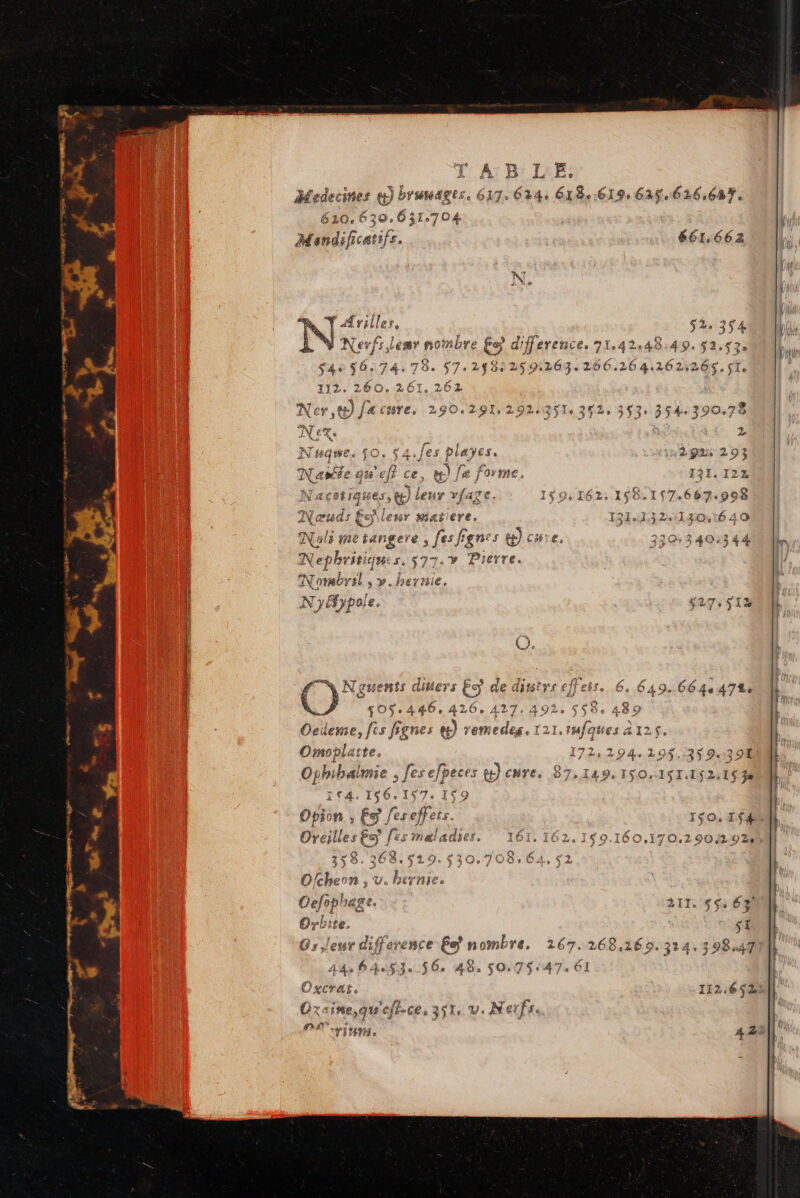 TABLE.
Medecines & bruuages. 617. 624. 618. 619. 625. 626.627.
620. 630. 631.704
Mundificatifs. 661.662
N.
NArilles. 52. 354
Nerfs, leur nombre & difference. 71.42.48.49. 52.53.
54. 56. 74. 78. 57. 258. 259.263. 266.264.262.265. 51.
112. 260. 261. 262
Ner, & sa cure. 290.291. 292.351. 352. 353. 354. 390.78
Nez. 2
Nuque. 50. 54. ses playes. 292. 293
Nawte qu'est ce, & sa forme. 131. 122
Nacotiques, & leur vsage. 159. 162. 158.157.667.998
Nœuds & leur matiere. 131.132.130.640
Noli me tangere, ses signes & cure. 330.340.344
Nephritiques. 577. v Pierre.
Nombril, v. hernie.
Nyctypole. 527. 512
O.
ONguents diuers & de diuers effets. 6. 649. 664. 478.
505. 446. 426. 427. 492. 558. 489
Oedeme, ses signes & remedes. 121. iusques à 125.
Omoplatte. 172. 294. 295. 359. 391
Ophthalmie, ses especes & cure. 87. 149. 150. 151.152.153.
154. 156. 157. 159
Opion, & ses effets. 150. 154
Oreilles & ses maladies. 161. 162. 159.160.170.290.292.
358. 368. 529. 530. 708. 64. 52
Oscheon, v. hernie.
Oesophage. 211. 55. 63
Orbite. 51
Os, leur difference & nombre. 267. 268.269. 314. 398.477
44. 64.53. 56. 48. 50.75.47. 61
Oxcrat. 112.652
Ozaine, qu'est-ce. 351. v. Nerfs.